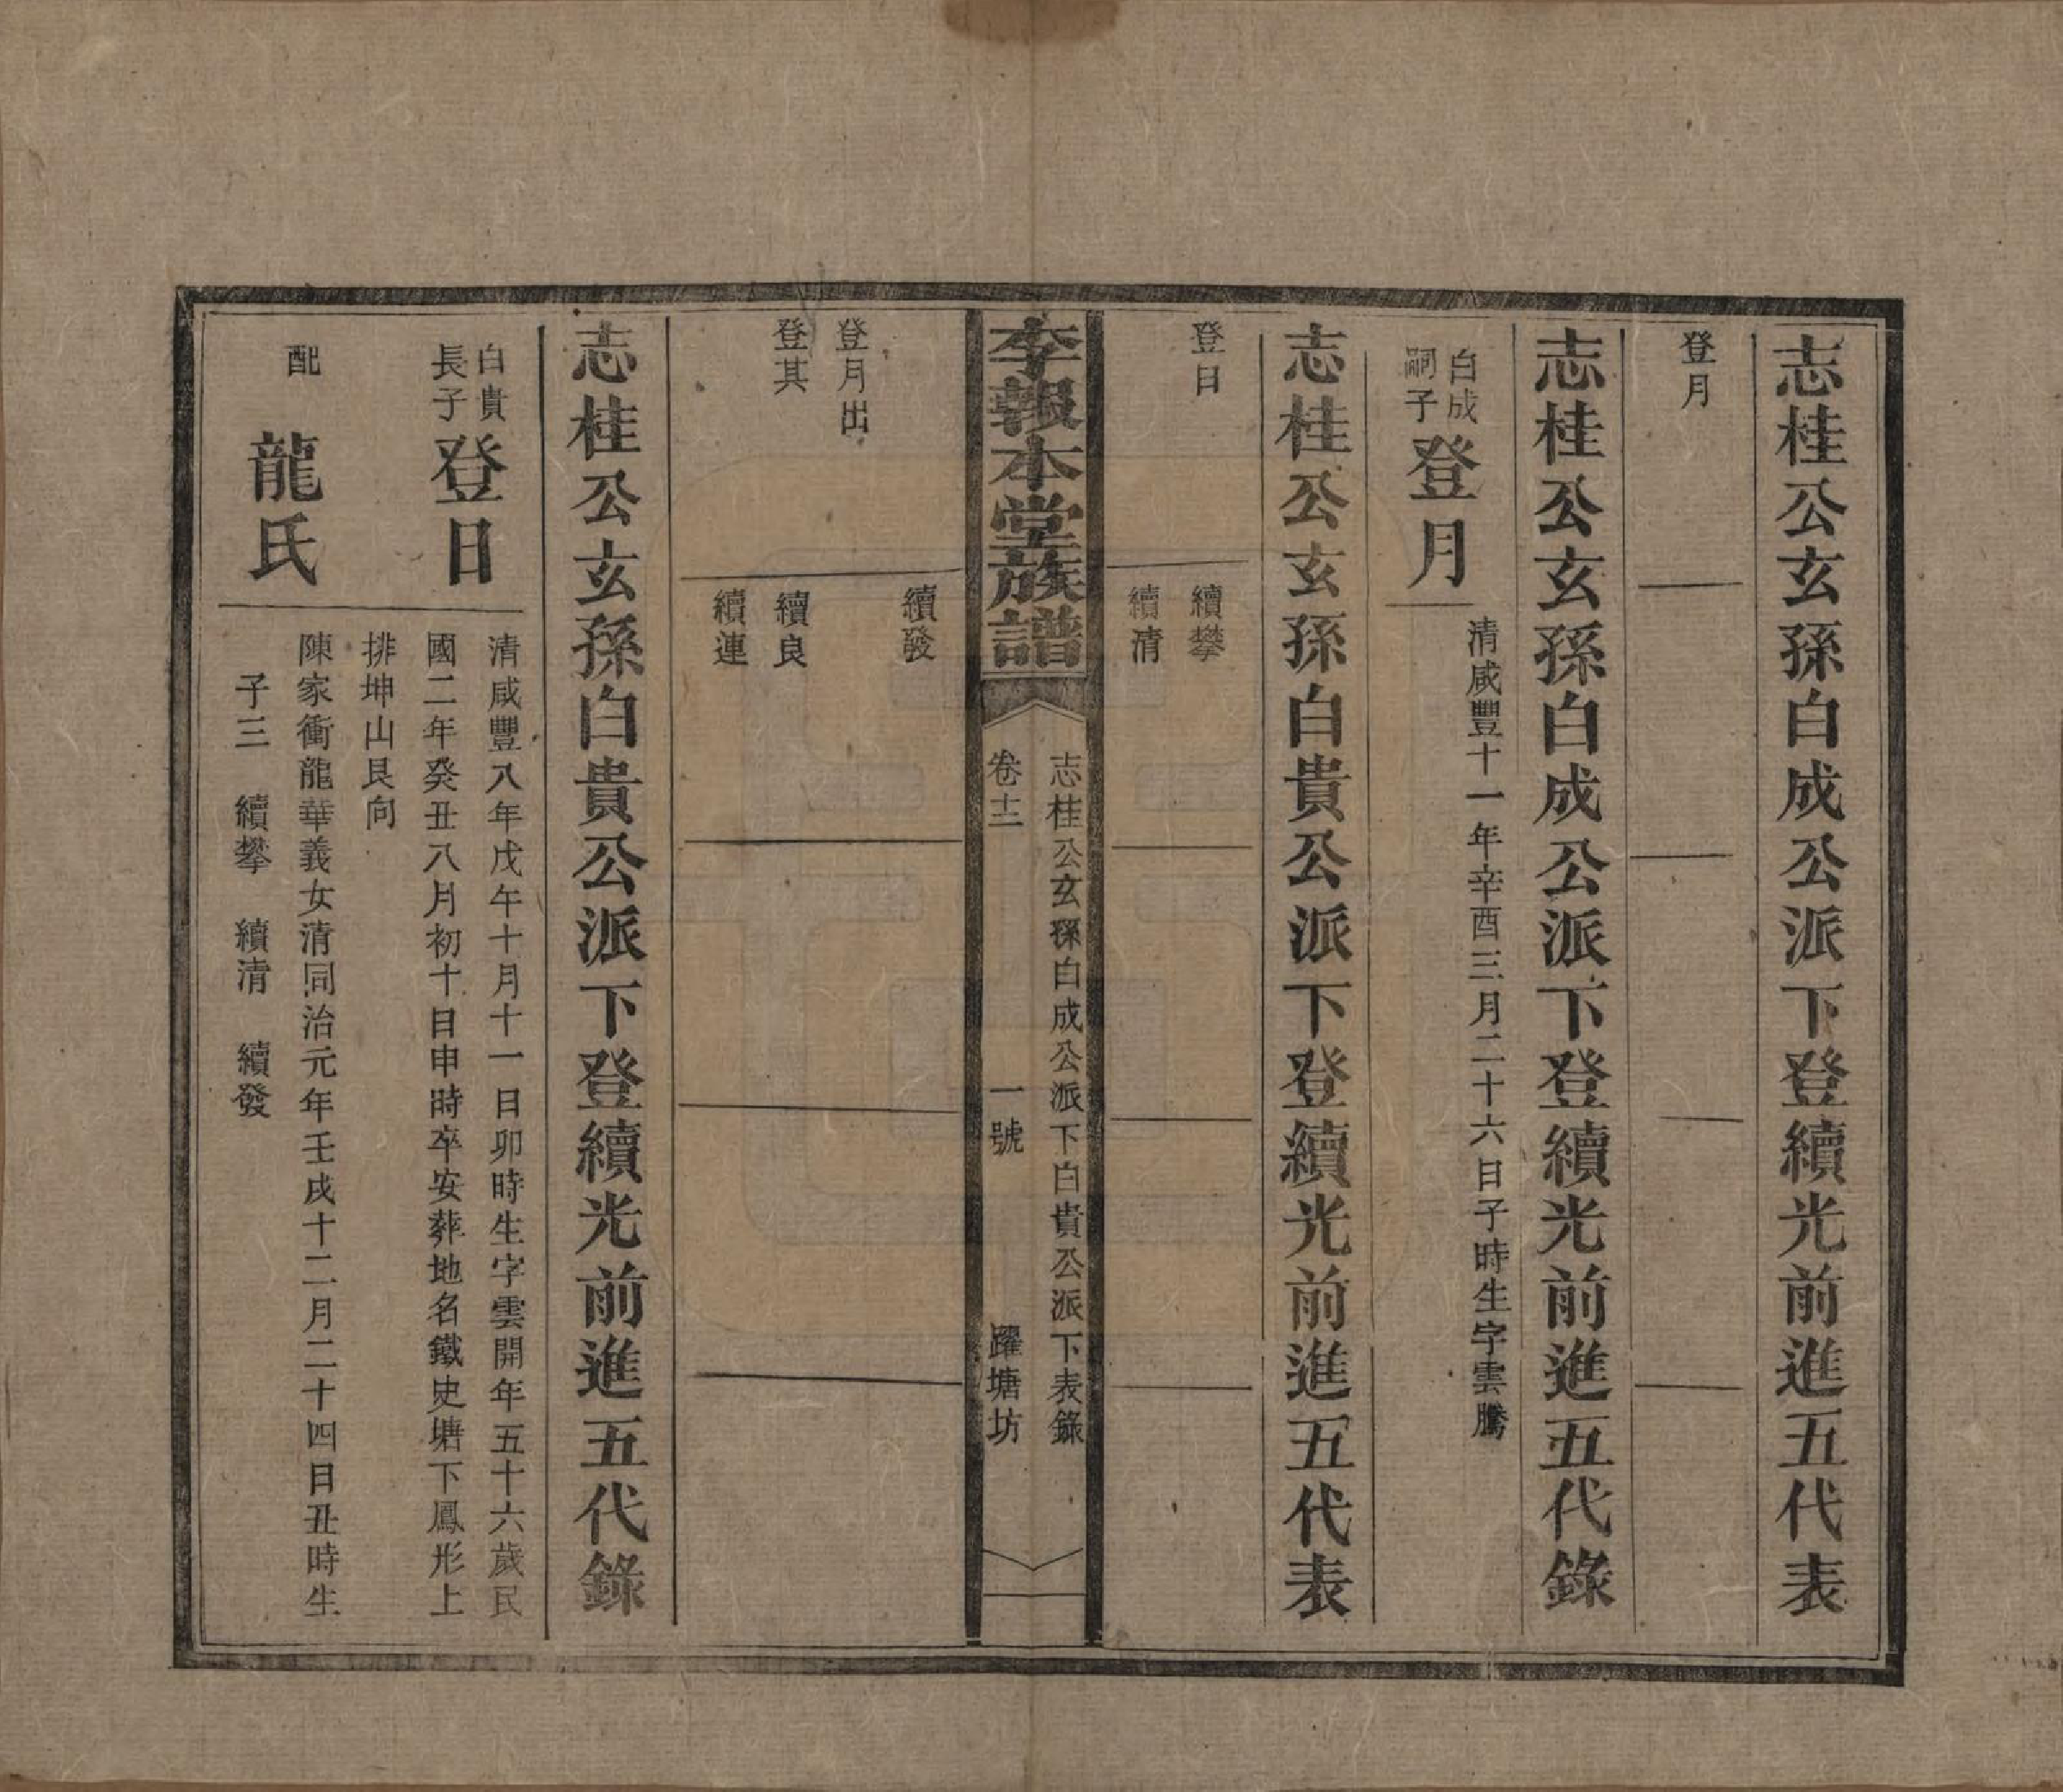 志桂公玄孫白成公派下登續光前進五代表
登月
志桂公玄孫白成公派下登續光前進五代錄
白成
嗣子
登月
清咸豐十一年辛酉三月二十六日子時生字雲騰
志桂公玄孫白貴公派下登續光前進五代表
登日
續攀
續清
李報本堂族譜
志桂公玄孫白成公派下白貴公派下表錄
卷十二 一號 躍塘坊
續發
登月出
登其
續良
續連
志桂公玄孫白貴公派下登續光前進五代錄
白貴
長子
登日
清咸豐八年戊午十月十一日卯時生字雲開年五十六歲民
國二年癸丑八月初十日申時卒安葬地名鐵史塘下鳳形上
排坤山艮向
配 龍氏
陳家衝龍華義女清同治元年壬戌十二月二十四日丑時生
子三 續攀 續清 續發